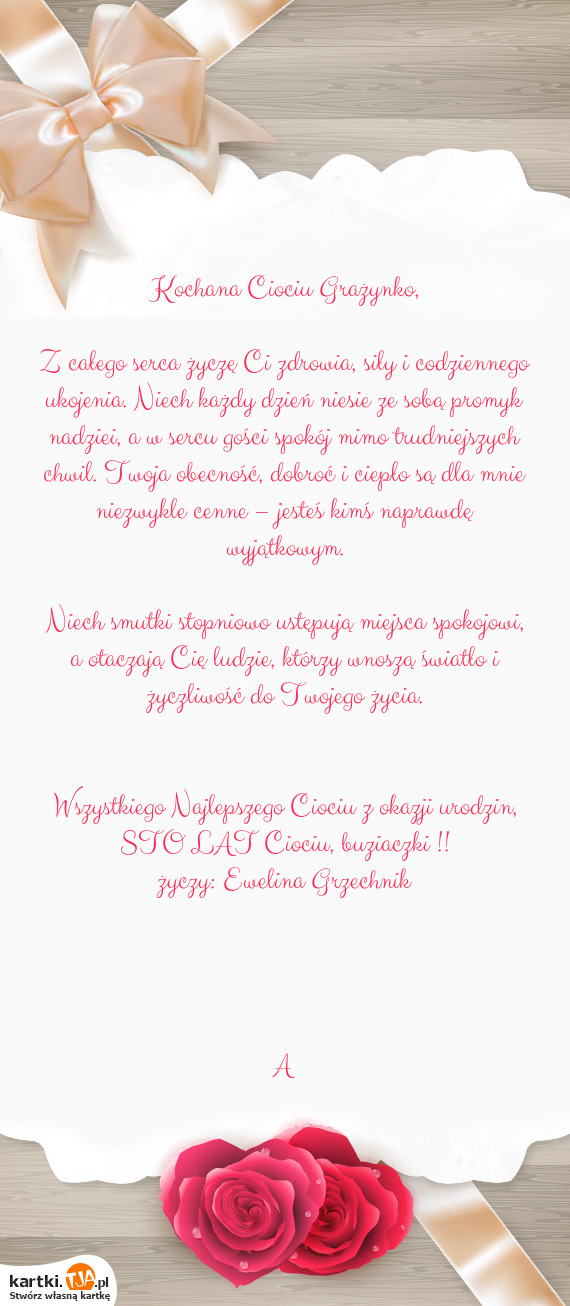 Kochana Ciociu Grażynko,
Z całego serca życzę Ci zdrowia, siły i codziennego
ukojenia. Niech każdy dzień niesie ze sobą promyk
nadziei, a w sercu gości spokój mimo trudniejszych
chwil. Twoja obecność, dobroć i ciepło są dla mnie
niezwykle cenne – jesteś kimś naprawdę
wyjątkowym.
Niech smutki stopniowo ustępują miejsca spokojowi,
a otaczają Cię ludzie, którzy wnoszą światło i
życzliwość do Twojego życia.
Wszystkiego Najlepszego Ciociu z okazji urodzin,
STO LAT Ciociu, buziaczki !!
życzy: Ewelina Grzechnik
A
kartki.TJA.pl
Stwórz własną kartkę